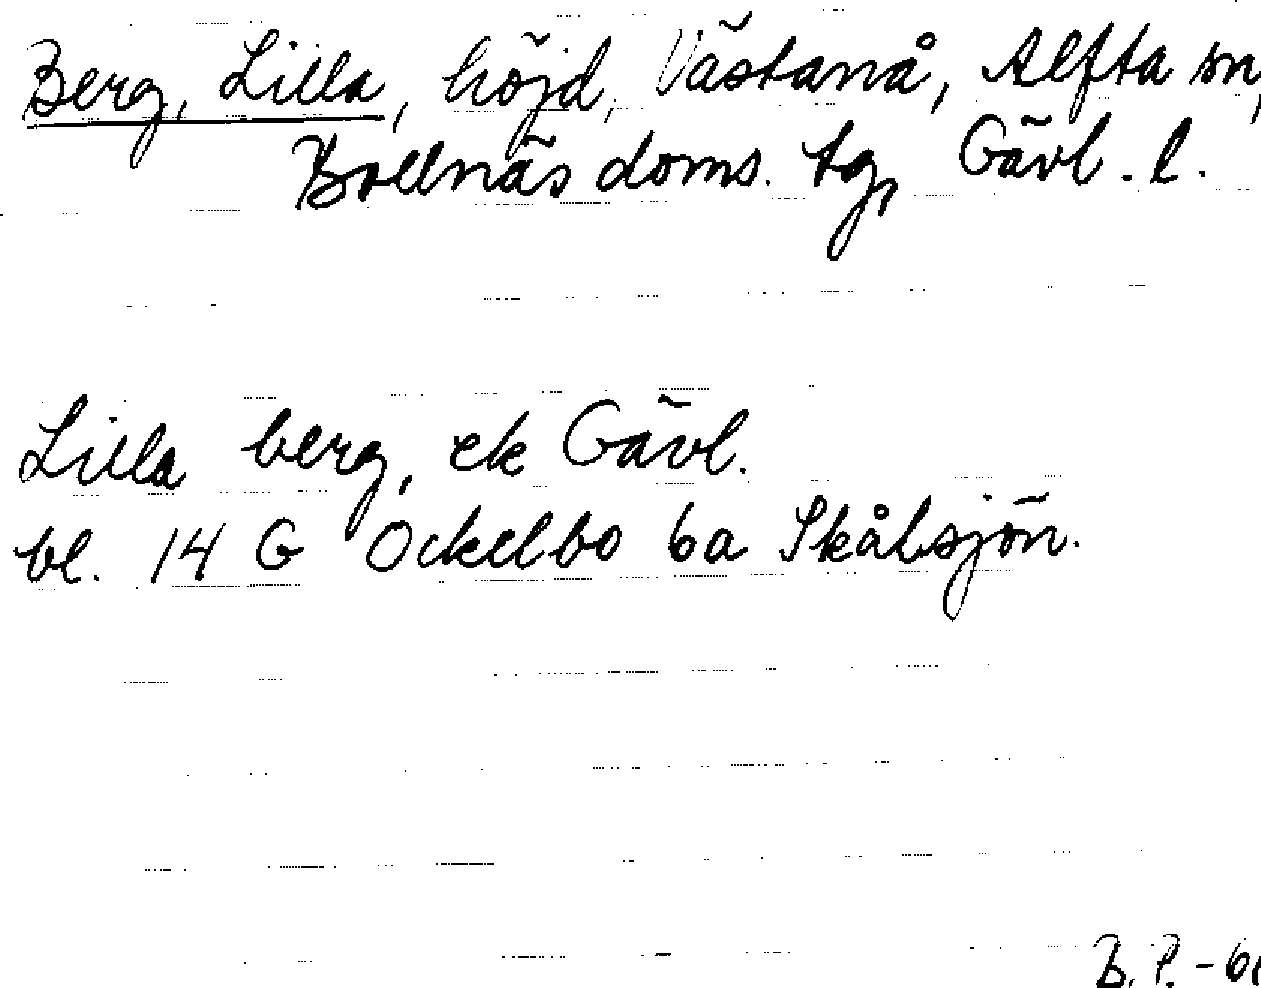 Berg, Lilla, höjd, Västanå, Alfta sn,
Bollnäs doms. tg, Gävl. l.
Lilla berg, ek Gävl.
bl. 14 G Ockelbo 6a Skålsjön.
B. P. -6